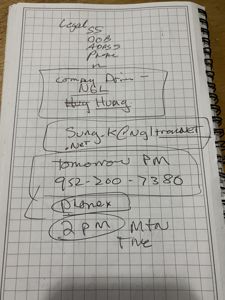 Legal
SS
DOB
ADRSS
Phone
NGL
Huang
Sung.k@ngltrans.net
.Net
Tomorrow PM
952-200-7380
Phonex
2 PM Mtn
Time